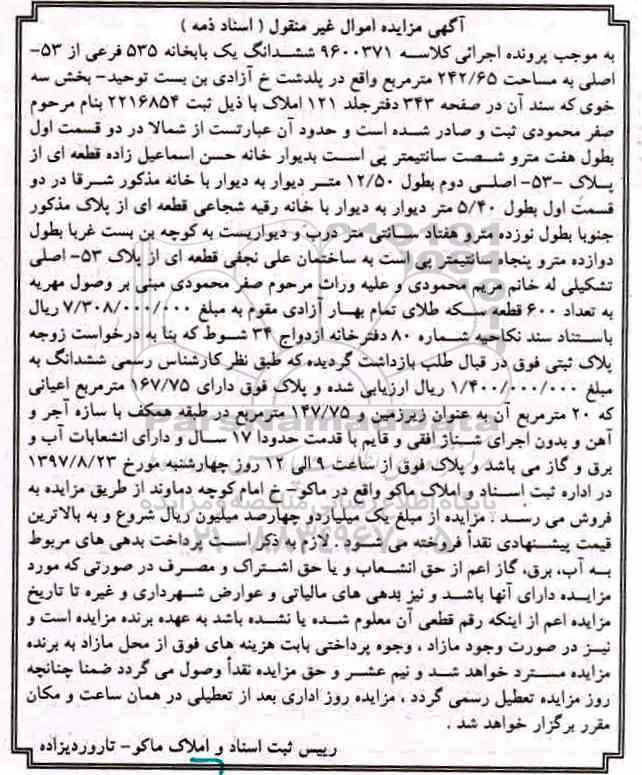 آگهی مزایده اموال غیر منقول ( اسناد ذمه )
به موجب پرونده اجرائی کلاسه ۹۶۰۰۳۷۱ ششدانگ یک بابخانه ۵۳۵ فرعی از ۵۳-
اصلی به مساحت ۲۴۲/۶۵ مترمربع واقع در پلدشت خ آزادی بن بست توحید- بخش سه
خوی که سند آن در صفحه ۳۴۳ دفترجلد ۱۲۱ املاک با ذیل ثبت ۲۲۱۶۸۵۴ بنام مرحوم
صفر محمودی ثبت و صادر شده است و حدود آن عبارتست از شمالا در دو قسمت اول
بطول هفت مترو شصت سانتیمتر پی است بدیوار خانه حسن اسماعیل زاده قطعه ای از
پلاک -۵۳- اصلی دوم بطول ۱۲/۵۰ متر دیوار به دیوار با خانه مذکور شرقا در دو
قسمت اول بطول ۵/۴۰ متر دیوار به دیوار با خانه رقیه شجاعی قطعه ای از پلاک مذکور
جنوبا بطول نوزده مترو هفتاد سانتی متر درب و دیواریست به کوچه بن بست غربا بطول
دوازده مترو پنجاه سانتیمتر پی است به ساختمان علی نجفی قطعه ای از پلاک ۵۳- اصلی
تشکیلی له خانم مریم محمودی و علیه وراث مرحوم صفر محمودی مبنی بر وصول مهریه
به تعداد ۶۰۰ قطعه سکه طلای تمام بهار آزادی مقوم به مبلغ ۷/۳۰۸/۰۰۰/۰۰۰ ریال
باستناد سند نکاحیه شماره ۸۰ دفترخانه ازدواج ۳۴ شوط که بنا به درخواست زوجه
پلاک ثبتی فوق در قبال طلب بازداشت گردیده که طبق نظر کارشناس رسمی ششدانگ به
مبلغ ۱/۴۰۰/۰۰۰/۰۰۰ ریال ارزیابی شده و پلاک فوق دارای ۱۶۷/۷۵ مترمربع اعیانی
که ۲۰ مترمربع آن به عنوان زیرزمین و ۱۴۷/۷۵ مترمربع در طبقه همکف با سازه آجر و
آهن و بدون اجرای شناژ افقی و قایم با قدمت حدودا ۱۷ سال و دارای انشعابات آب و
برق و گاز می باشد و پلاک فوق از ساعت ۹ الی ۱۲ روز چهارشنبه مورخ ۱۳۹۷/۸/۲۳
در اداره ثبت اسناد و املاک ماکو واقع در ماکو- خ امام کوچه دماوند از طریق مزایده به
فروش می رسد . مزایده از مبلغ یک میلیاردو چهارصد میلیون ریال شروع و به بالاترین
قیمت پیشنهادی نقداً فروخته می شود . لازم به ذکر است پرداخت بدهی های مربوط
به آب، برق، گاز اعم از حق انشعاب و یا حق اشتراک و مصرف در صورتی که مورد
مزایده دارای آنها باشد و نیز بدهی های مالیاتی و عوارض شهرداری و غیره تا تاریخ
مزایده اعم از اینکه رقم قطعی آن معلوم شده یا نشده باشد به عهده برنده مزایده است و
نیز در صورت وجود مازاد ، وجوه پرداختی بابت هزینه های فوق از محل مازاد به برنده
مزایده مسترد خواهد شد و نیم عشر و حق مزایده نقداً وصول می گردد ضمنا چنانچه
روز مزایده تعطیل رسمی گردد ، مزایده روز اداری بعد از تعطیلی در همان ساعت و مکان
مقرر برگزار خواهد شد .
رییس ثبت اسناد و املاک ماکو- تاروردیزاده
ParsNamadData
پایگاه اطلاع رسانی مناقصه و مزایده
۰۲۱-۸۸۳۴۹۶۷۰-۵